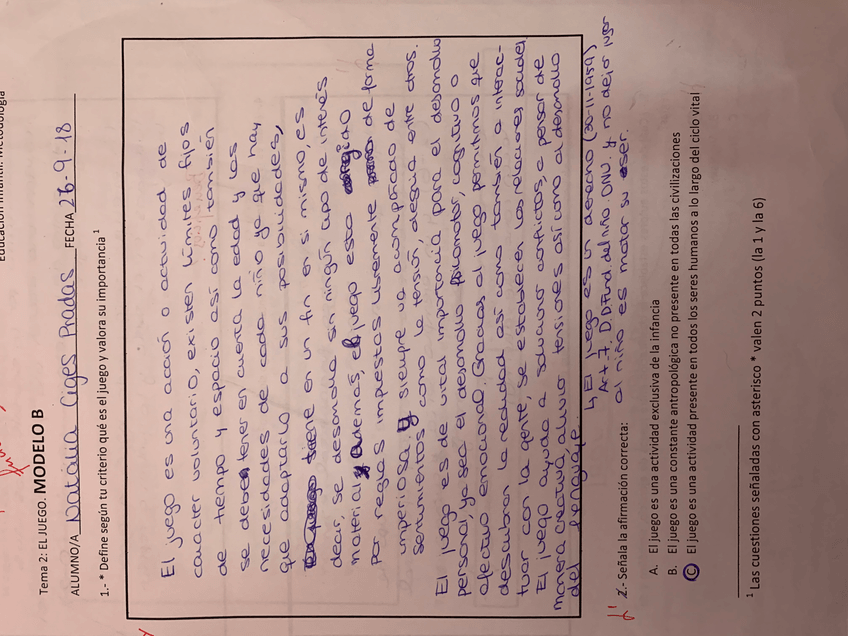 Educación Infantil. Metodología
Tema 2: EL JUEGO. MODELO B
ALUMNO/A Natalia Ciges Pradas FECHA 26-9-18
1.- * Define según tu criterio qué es el juego y valora su importancia ¹
El juego es una acción o actividad de
carácter voluntario, existen límites fijos
de tiempo y espacio así como también
se deben tener en cuenta la edad y las
necesidades de cada niño ya que hay
que adaptarlo a sus posibilidades,
tiene en un fin en si mismo, es
decir, se desarrolla sin ningún tipo de interés
material y además, el juego esta
por reglas impuestas libremente de forma
imperiosa y siempre va acompañado de
sentimientos como la tensión, alegría entre otros.
El juego es de vital importancia para el desarrollo
personal, ya sea el desarrollo psicomotor, cognitivo o
afectivo emocional. Gracias al juego permitimos que
descubran la realidad así como también a interac-
tuar con la gente, se establecen las relaciones sociales,
El juego ayuda a solucionar conflictos, a pensar de
manera creativa, alivia tensiones así como al desarrollo
del lenguaje.
↳ El juego es un derecho (30-11-1959)
Art. 7. D.DFund del niño. ONU. y no dejar jugar
al niño es matar su ser.
1' 2.- Señala la afirmación correcta:
A. El juego es una actividad exclusiva de la infancia
B. El juego es una constante antropológica no presente en todas las civilizaciones
C. El juego es una actividad presente en todos los seres humanos a lo largo del ciclo vital
¹ Las cuestiones señaladas con asterisco * valen 2 puntos (la 1 y la 6)